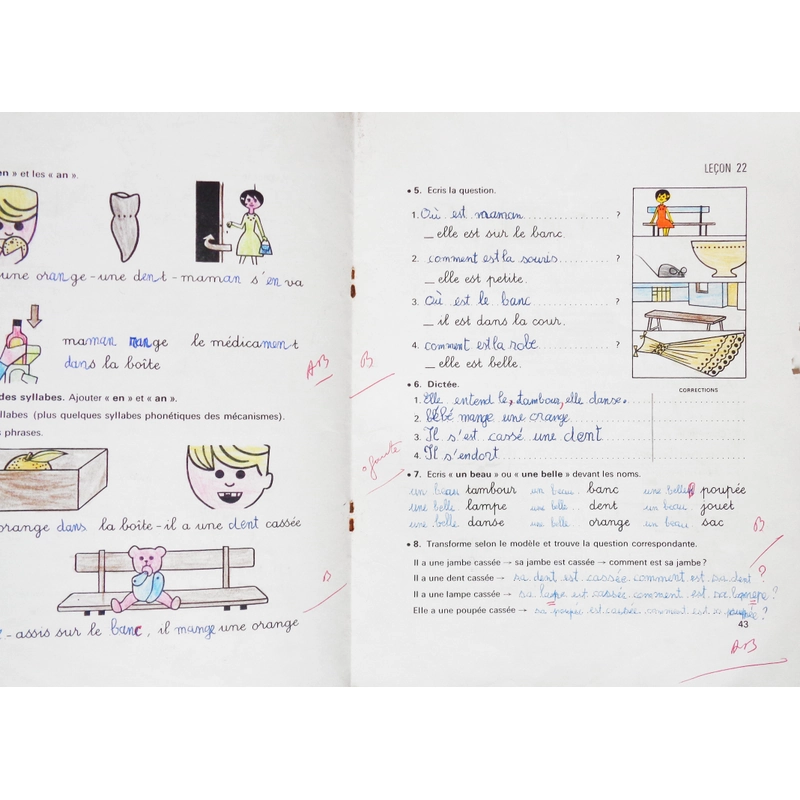 en » et les « an ».
une orange - une dent - maman s'en va
maman range le médicament
dans la boîte
AB
des syllabes. Ajouter « en » et « an ».
llabes (plus quelques syllabes phonétiques des mécanismes).
s phrases.
orange dans la boîte - il a une dent cassée
B
- assis sur le banc, il mange une orange
LEÇON 22
• 5. Ecris la question.
1. Où est maman ?
_ elle est sur le banc.
2. comment est la souris ?
_ elle est petite.
3. Où est le banc ?
_ il est dans la cour.
4. comment est la robe ?
_ elle est belle.
B
• 6. Dictée.
CORRECTIONS
1. Elle entend le, tambour, elle danse.
2. Bébé mange une orange
3. Il s'est cassé une dent
4. Il s'endort
• 7. Ecris « un beau » ou « une belle » devant les noms.
un beau tambour un beau banc une belle poupée
une belle lampe une belle dent un beau jouet
une belle danse une belle orange un beau sac
B
• 8. Transforme selon le modèle et trouve la question correspondante.
Il a une jambe cassée → sa jambe est cassée → comment est sa jambe ?
Il a une dent cassée → sa dent est cassée comment est sa dent ?
Il a une lampe cassée → sa lape est cassée comment est sa
Elle a une poupée cassée → sa poupée est cassée comment est sa poupée ?
43
AB